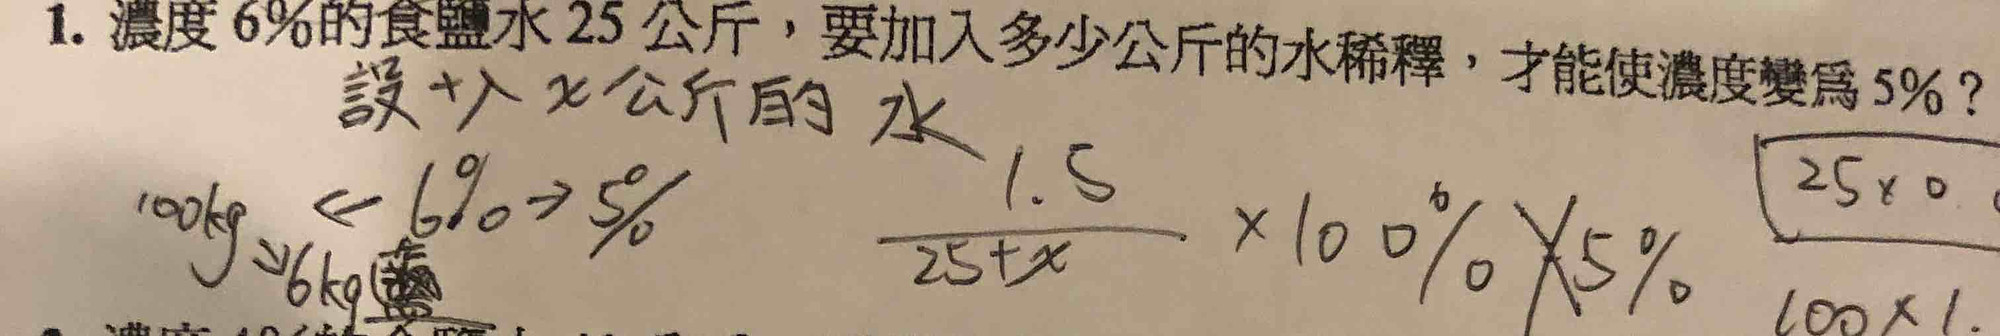 1. 濃度 6%的食鹽水 25 公斤，要加入多少公斤的水稀釋，才能使濃度變爲 5%？
設加入 x 公斤的 水
100kg ← 6% → 5%
→ 6kg
1.5
25+x
× 100%
5%
25×0
100×1.